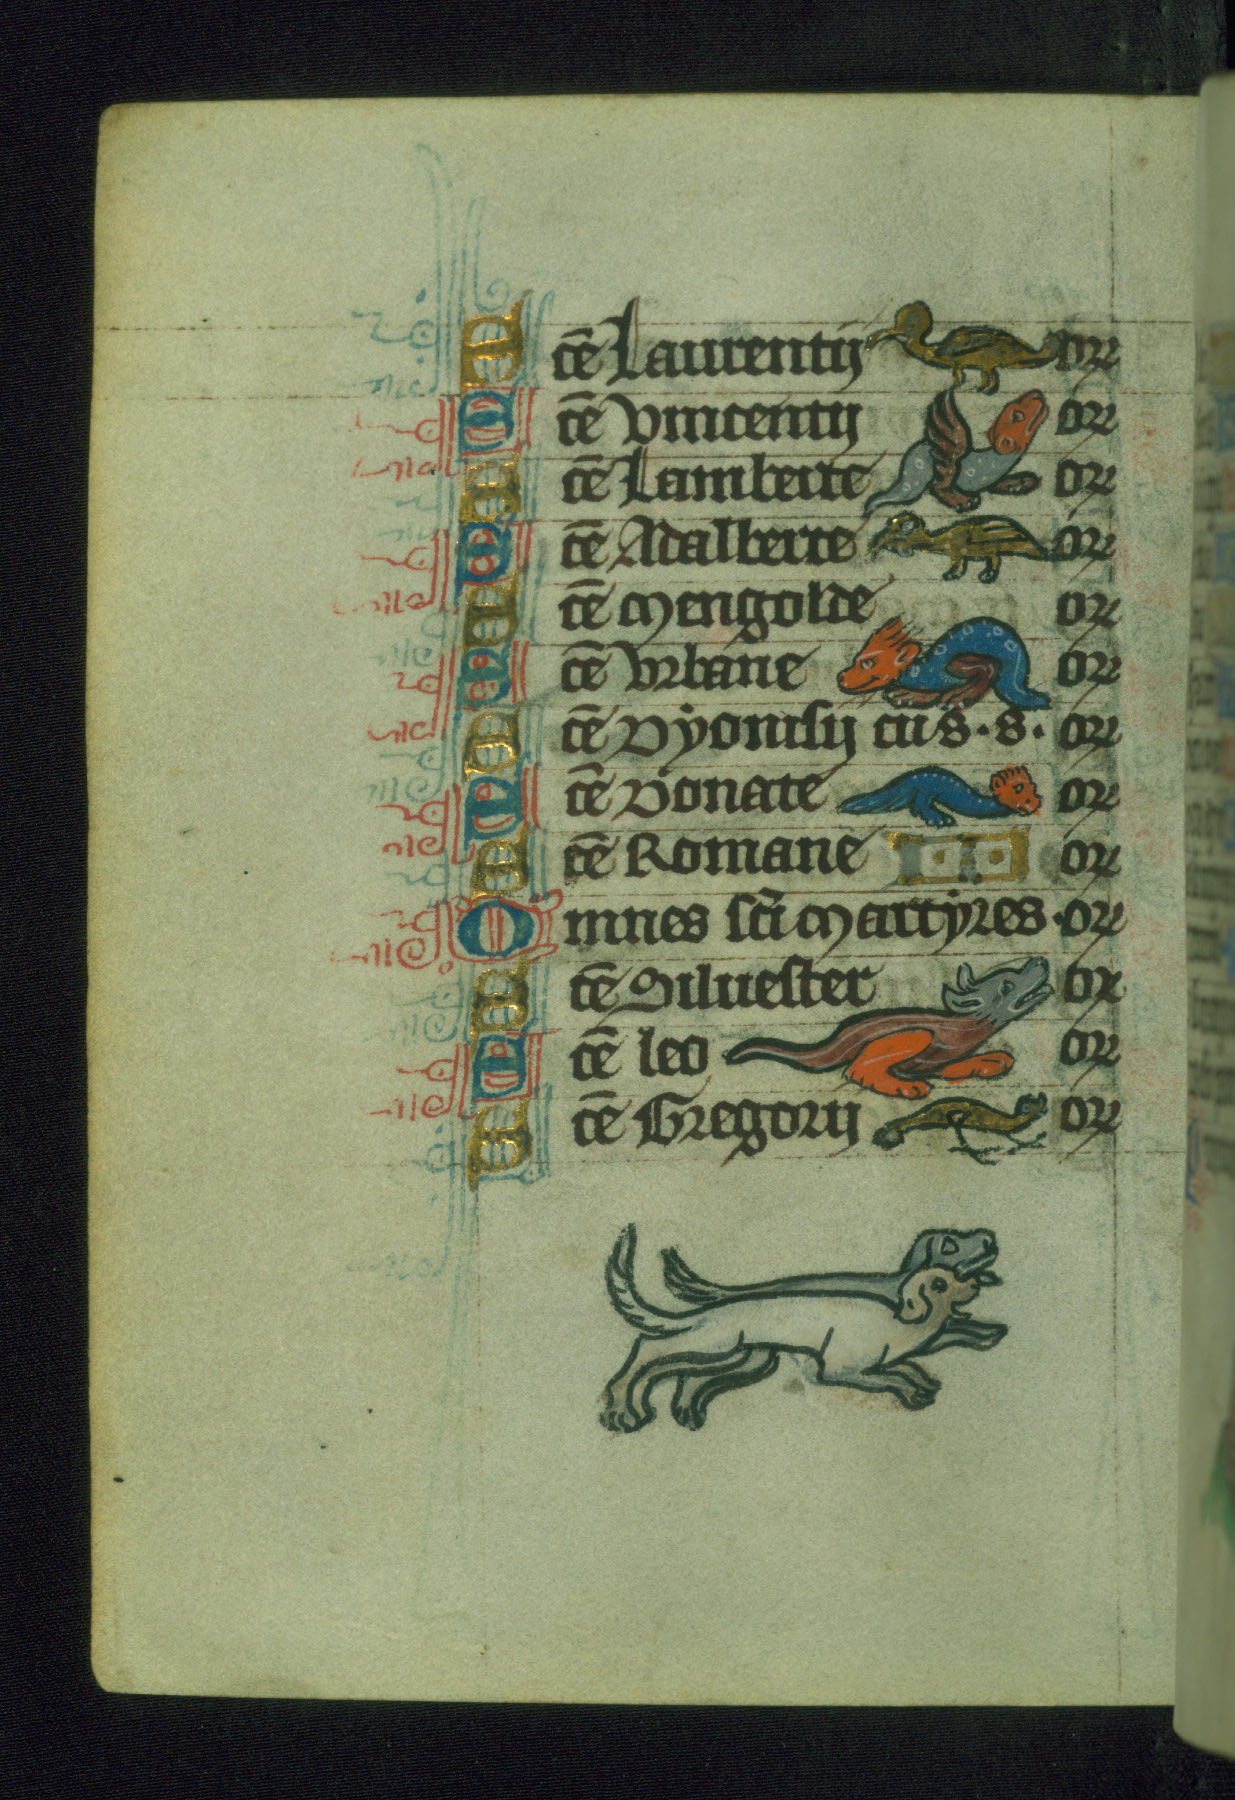 Sce Laurentij or
Sce Vincentij or
Sce Lamberte or
Sce Adalberte or
Sce Mengolde or
Sce Vrbane or
Sce Dyonisij cu s. s. or
Sce Donate or
Sce Romane or
Omnes sci Martyres. or
Sce Siluester or
Sce leo or
Sce Gregorij or